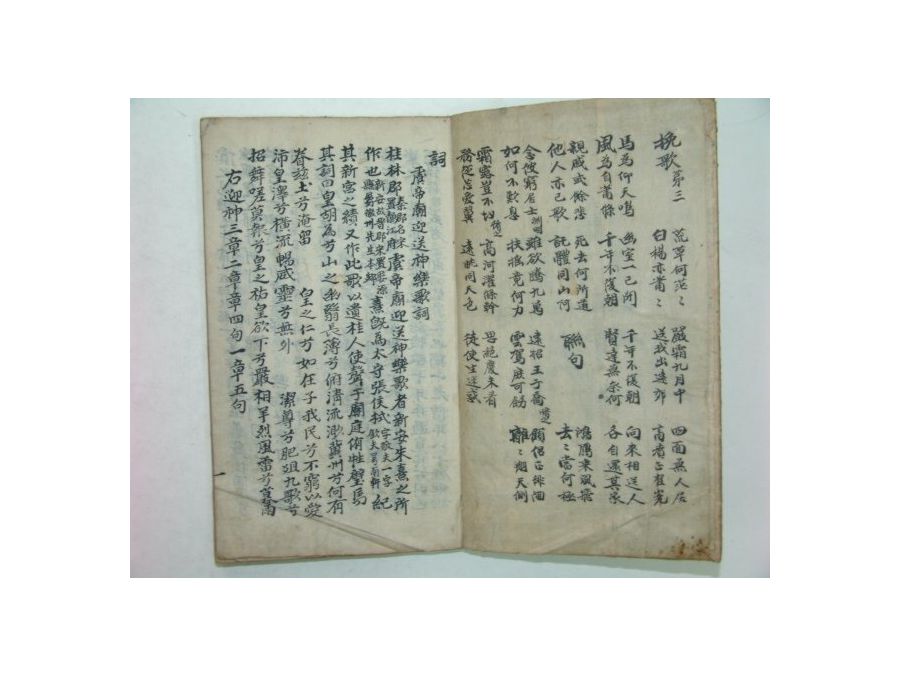 挽歌 第三 荒草何茫〻 嚴霜九月中 四面無人居
白楊亦蕭〻 送我出遠郊 高者正
馬爲仰天鳴 幽室一已閉 千年不復朝 向來相送人
風爲自蕭條 千年不復朝 賢達無柰何 各自還其家
親戚或餘悲 死去何所道 聯句 鴻鴈乘風飛
他人亦已歌 託體同山阿 去〻當何極
念彼窮居士 淵明 雖欲騰九萬 遠招王子喬 循之 顧侶正徘徊
如何不歎息 扶搖竟何力 雲駕庶可飭 離〻翔天側
霜露豈不切 循之 高河濯條幹 思絶慶未看
務從忘愛翼 遠眺同天色 徒使生迷惑
詞
虞帝廟迎送神樂歌詞
桂林郡 秦郡名宋置靜江府 虞帝廟迎送神樂歌者新安朱熹之所
作也 新安故晉郡宋置婺源縣屬徽州先生本鄕 熹旣爲太守張侯栻 字敬夫一字欽夫號南軒 紀
其新宮之績又作此歌以遺桂人使聲于廟庭侑牲璧焉
其詞曰皇胡爲兮山之幽翳長薄兮俯清流渺冀州兮何有
眷玆土兮淹留 皇之仁兮如在子我民兮不窮以愛
沛皇澤兮橫流暢威靈兮無外 潔尊兮肥俎九歌兮
招舞嗟莫報兮皇之祜皇欲下兮儼相羊烈風雷兮
右迎神三章二章章四句一章五句